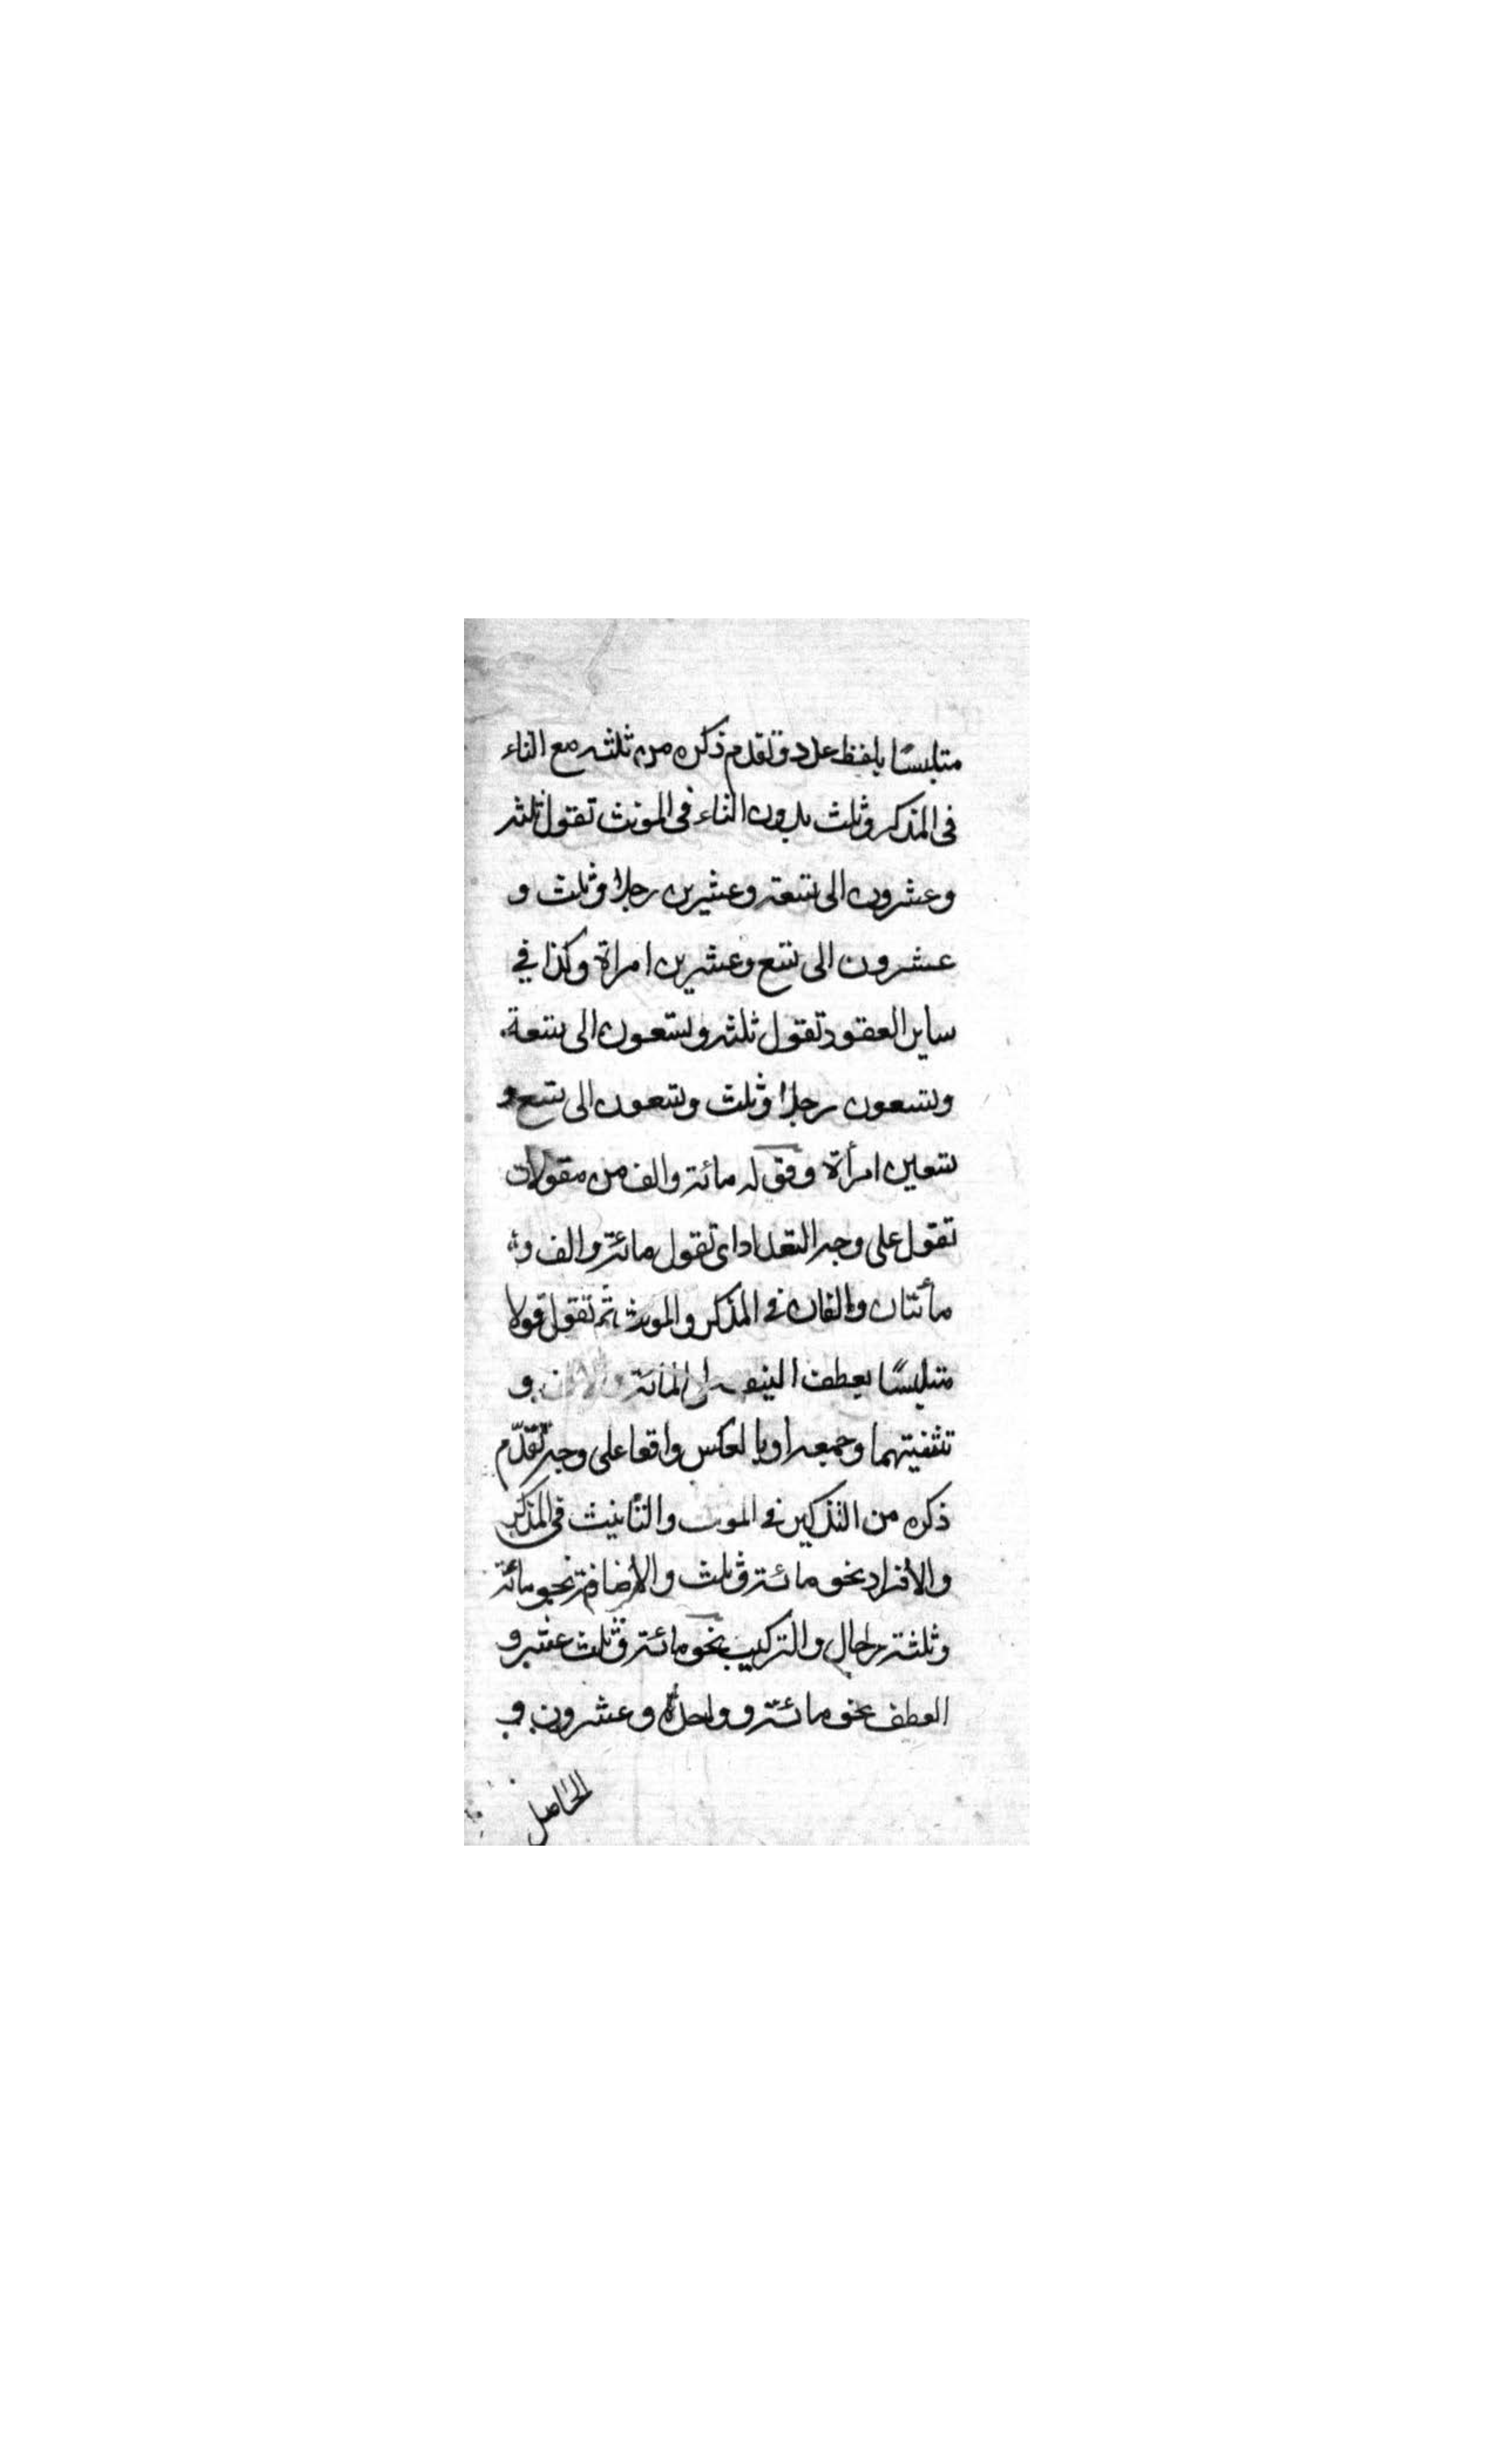 متلبسًا بلفظ عدد وتقدم ذكره من ثلثه مع التاء
فى المذكر وثلث بدون التاء فى المونث تقول ثلثه
وعشرون الى تسعة وعشرين رجلا وثلث و
عشرون الى تسع وعشرين امراة وكذا في
ساير العقود تقول ثلثه وتسعون الى تسعة
وتسعون رجلا وثلث وتسعون الى تسع و
تسعين امرأة وقوله مائة والف من مقولات
تقول على وجه التعداد اى تقول مائة والف و
مأتتان والفان فى المذكر والمونث ثم تقول قولا
متلبسًا بعطف النيف على المائة والالف و
تثنيتهما وجمعه او بالعكس واقعا على وجه تقدّم
ذكره من التذكير فى المونث والتأنيث فى المذكر
والافراد نحو مائة وثلث والاضافة نحو مائة
وثلثة رجال والتركيب نحو مائة وثلث عشر و
العطف نحو مائة وواحدة وعشرون و
الحاصل